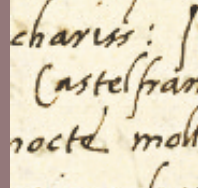 chariss:
Castelfran
nocte moll